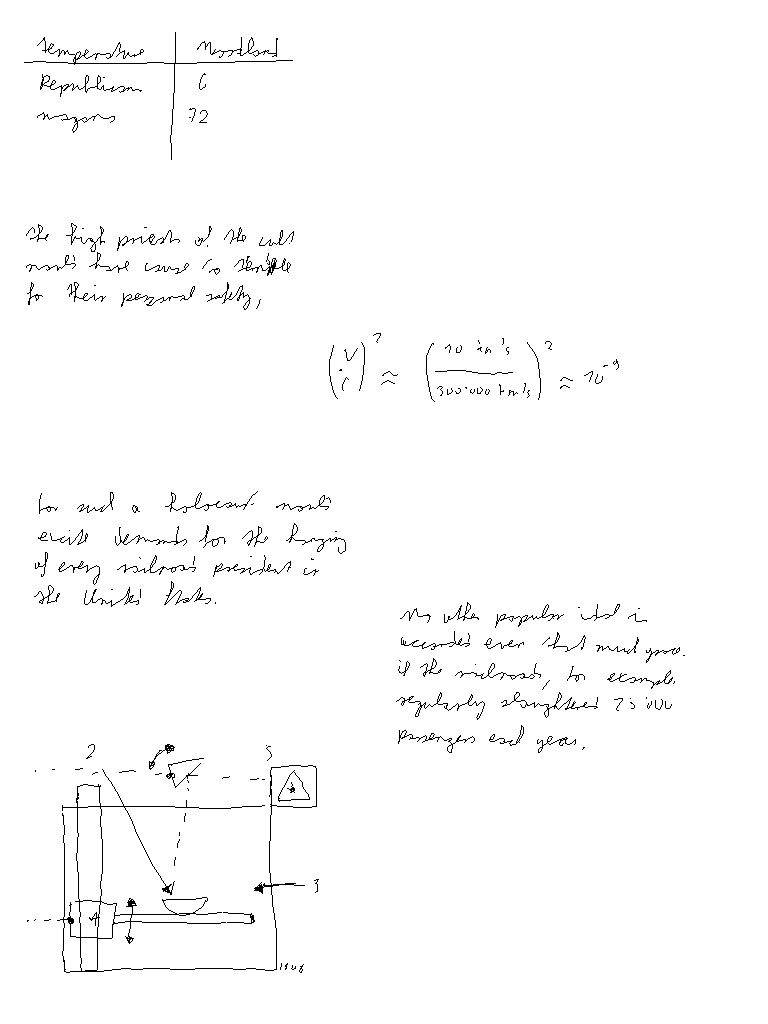 Temperature Woodland
Republican 6
wagons 72
the high priests of the cult
would have cause to tremble
for their personal safety,
(v/c)² ≈ (30 km/s / 300.000 km/s)² ≈ 10⁻⁹
for such a holocaust would
excite demands for the hanging
of every railroad president in
the United States.
No other popular idol is
accorded even that much grace.
if the railroads, for example
regularly slaughtered 25.000
passengers each year,
2
5
3
4